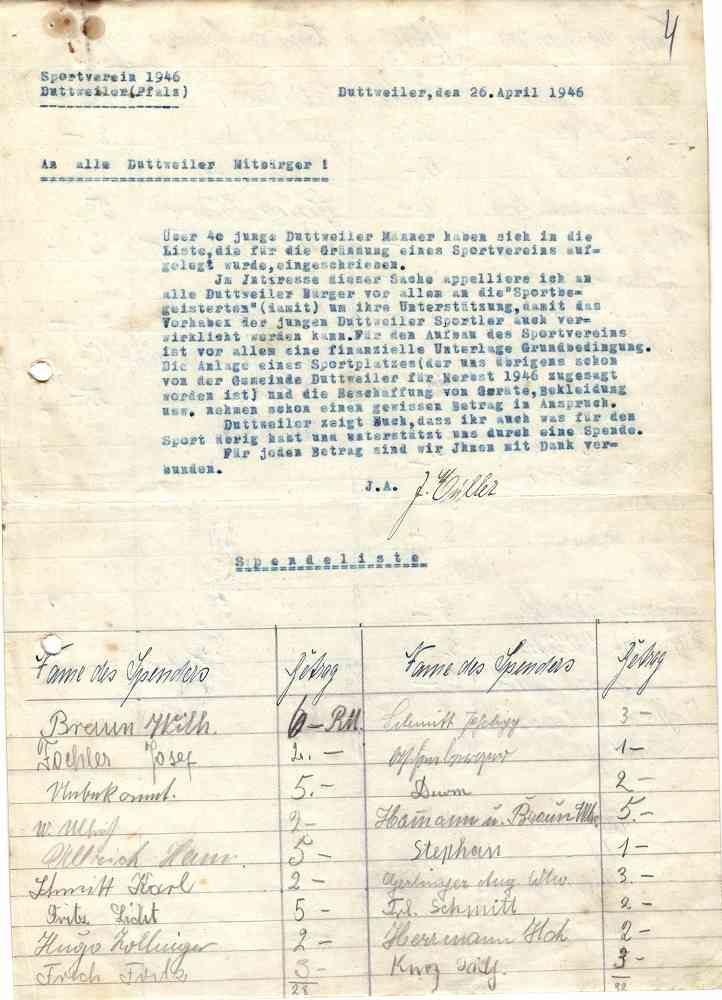 4
Sportverein 1946
Duttweiler(Pfalz)
Duttweiler,den 26.April 1946
An alle Duttweiler Mitbürger !
Über 4o junge Duttweiler Männer haben sich in die
Liste,die für die Gründung eines Sportvereins auf=
gelegt wurde,eingeschrieben.
Jm Jntresse dieser Sache appelliere ich an
alle Duttweiler Bürger vor allem an die"Sportbe=
geisterten"(damit) um ihre Unterstützung,damit das
Vorhaben der jungen Duttweiler Sportler auch ver=
wirklicht werden kann.Für den Aufbau des Sportvereins
ist vor allem eine finanzielle Unterlage Grundbedingung.
Die Anlage eines Sportplatzes(der uns übrigens schon
von der Gemeinde Duttweiler für Herbst 1946 zugesagt
worden ist) und die Beschaffung von Geräte,Bekleidung
usw. nehmen schon einen gewissen Betrag in Anspruch.
Duttweiler zeigt Euch,dass ihr auch was für den
Sport übrig habt und unterstützt uns durch eine Spende.
Für jeden Betrag sind wir Jhnen mit Dank ver=
bunden.
J.A. J. Müller
Spendeliste
Name des Spenders Betrag Name des Spenders Betrag
Braun Wilh. 6 – RM. Schmitt 3 –
Josef 2. – 1 –
Unbekannt. 5. – Durm 2 –
W. Ullrich 2 – Hamann u. Braun Ww. 5. –
Ullrich Ham. 5 – Stephan 1 –
Schmitt Karl 2 – Aug Ww. 3. –
Fritz Licht 5 – Frl. Schmitt 2 –
Hugo Zollinger 2 – Herrmann Hch 2 –
Frech Fritz 3 – Kurz 3 –
28